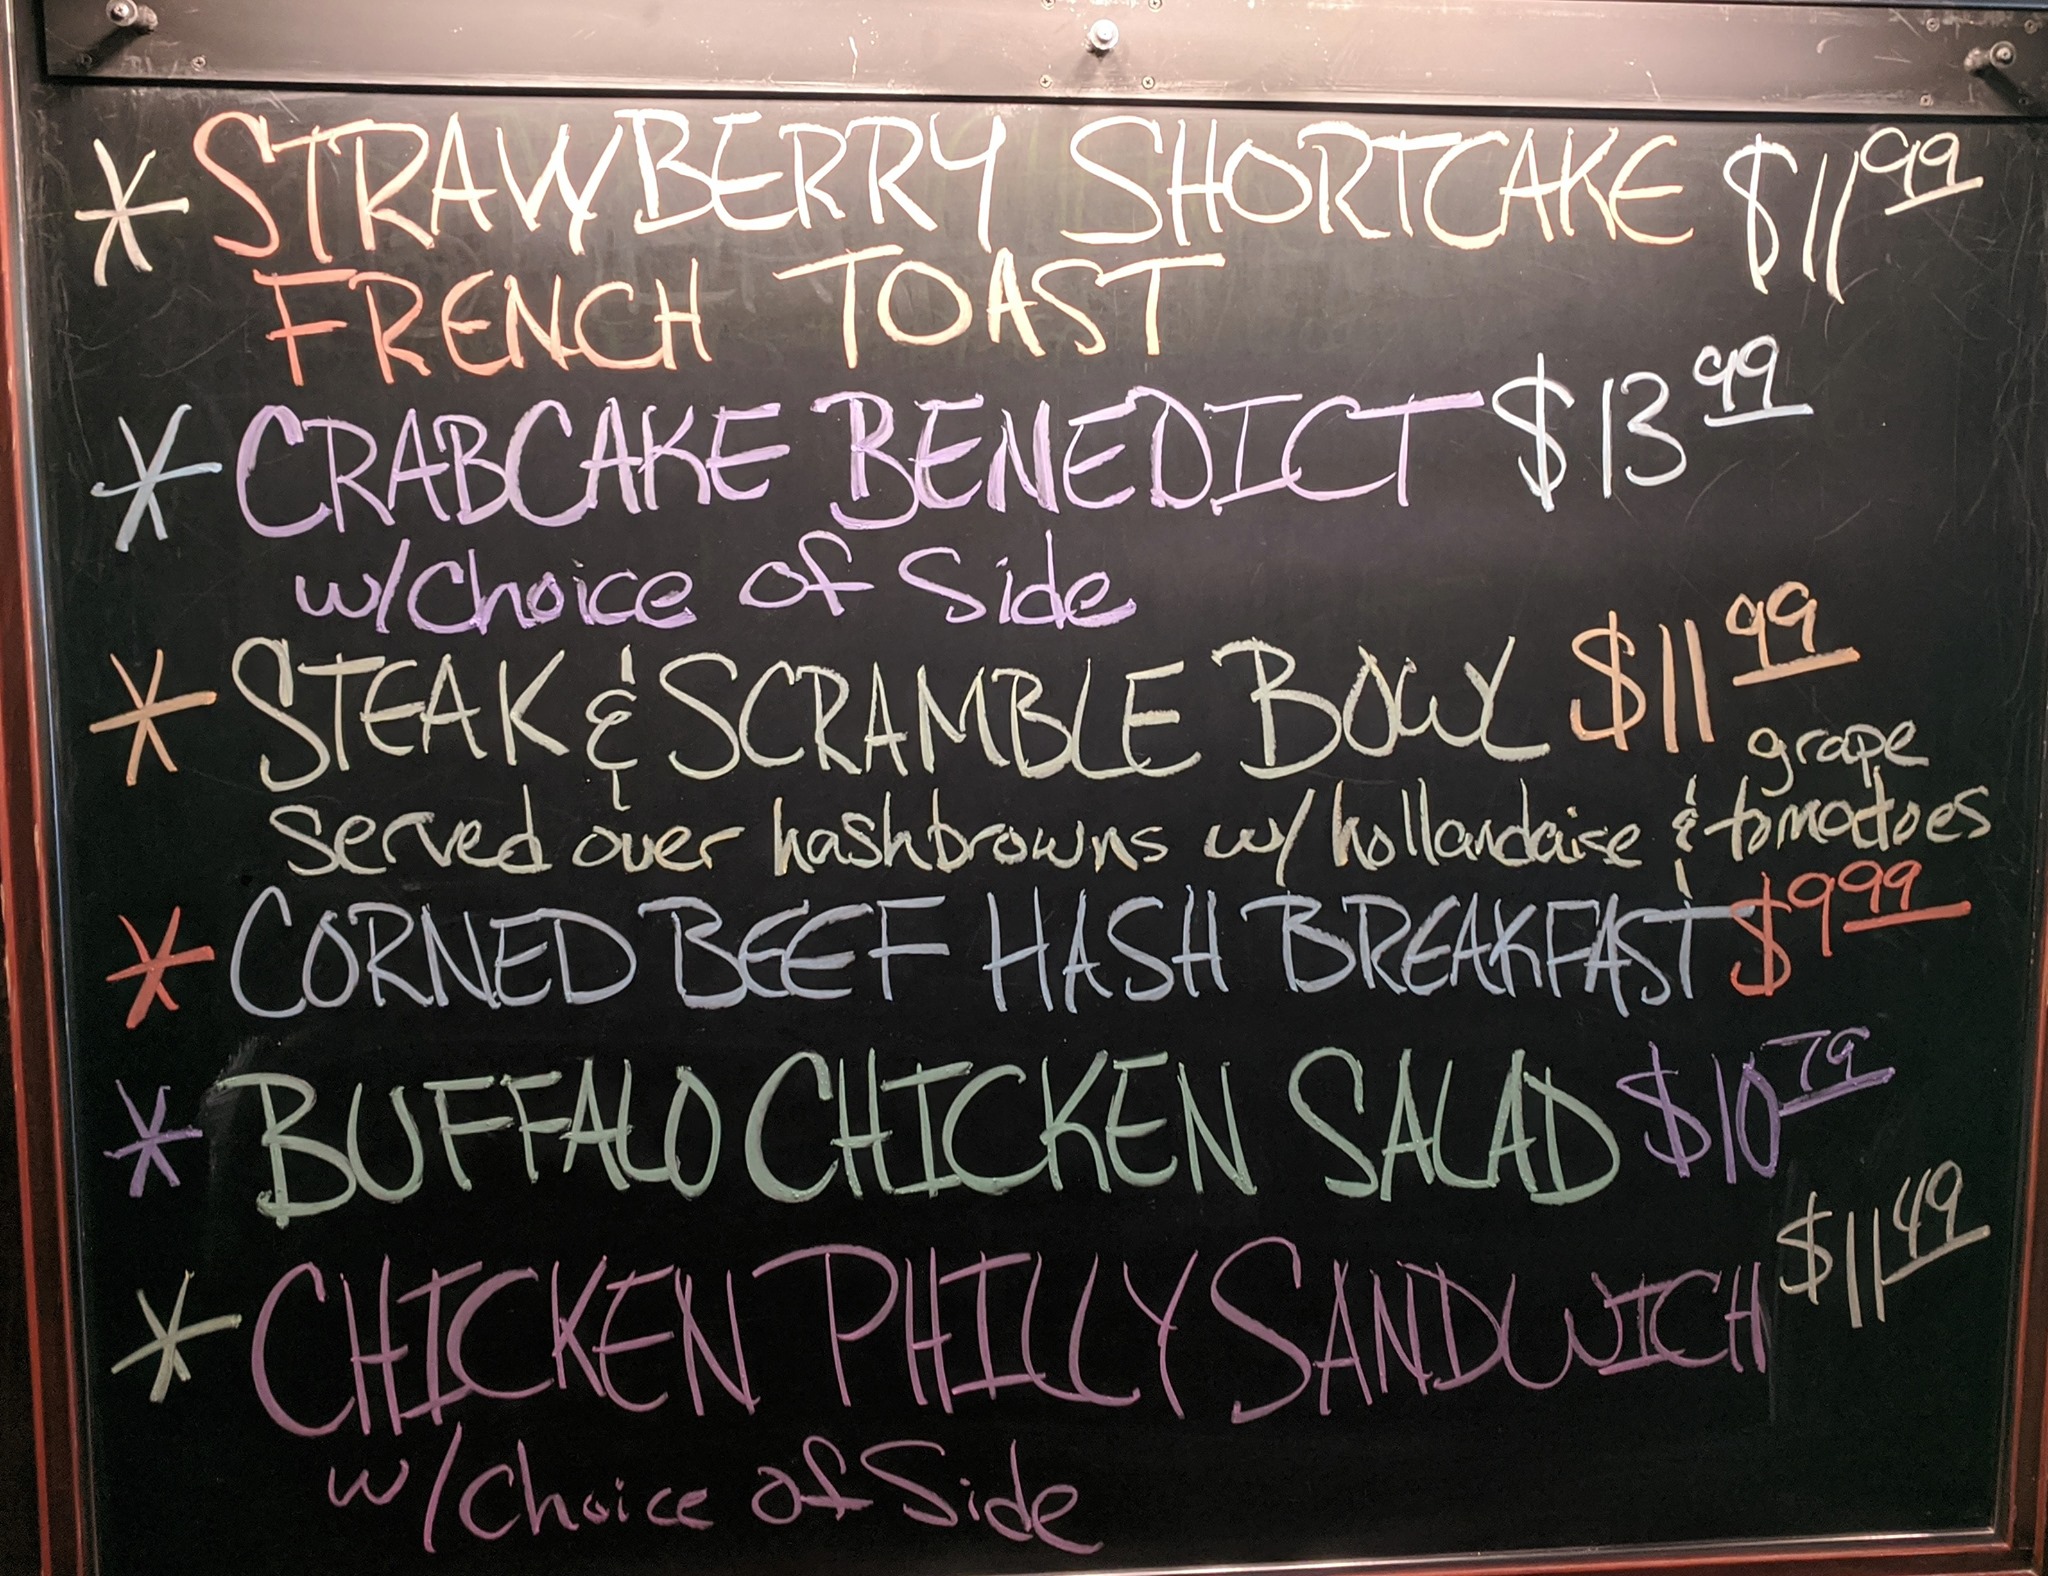 * STRAWBERRY SHORTCAKE $11.99
FRENCH TOAST
* CRABCAKE BENEDICT $13.99
w/Choice of Side
* STEAK & SCRAMBLE BOWL $11.99
served over hashbrowns w/ hollandaise & grape tomatoes
* CORNED BEEF HASH BREAKFAST $9.99
* BUFFALO CHICKEN SALAD $10.79
* CHICKEN PHILLY SANDWICH $11.49
w/Choice of Side